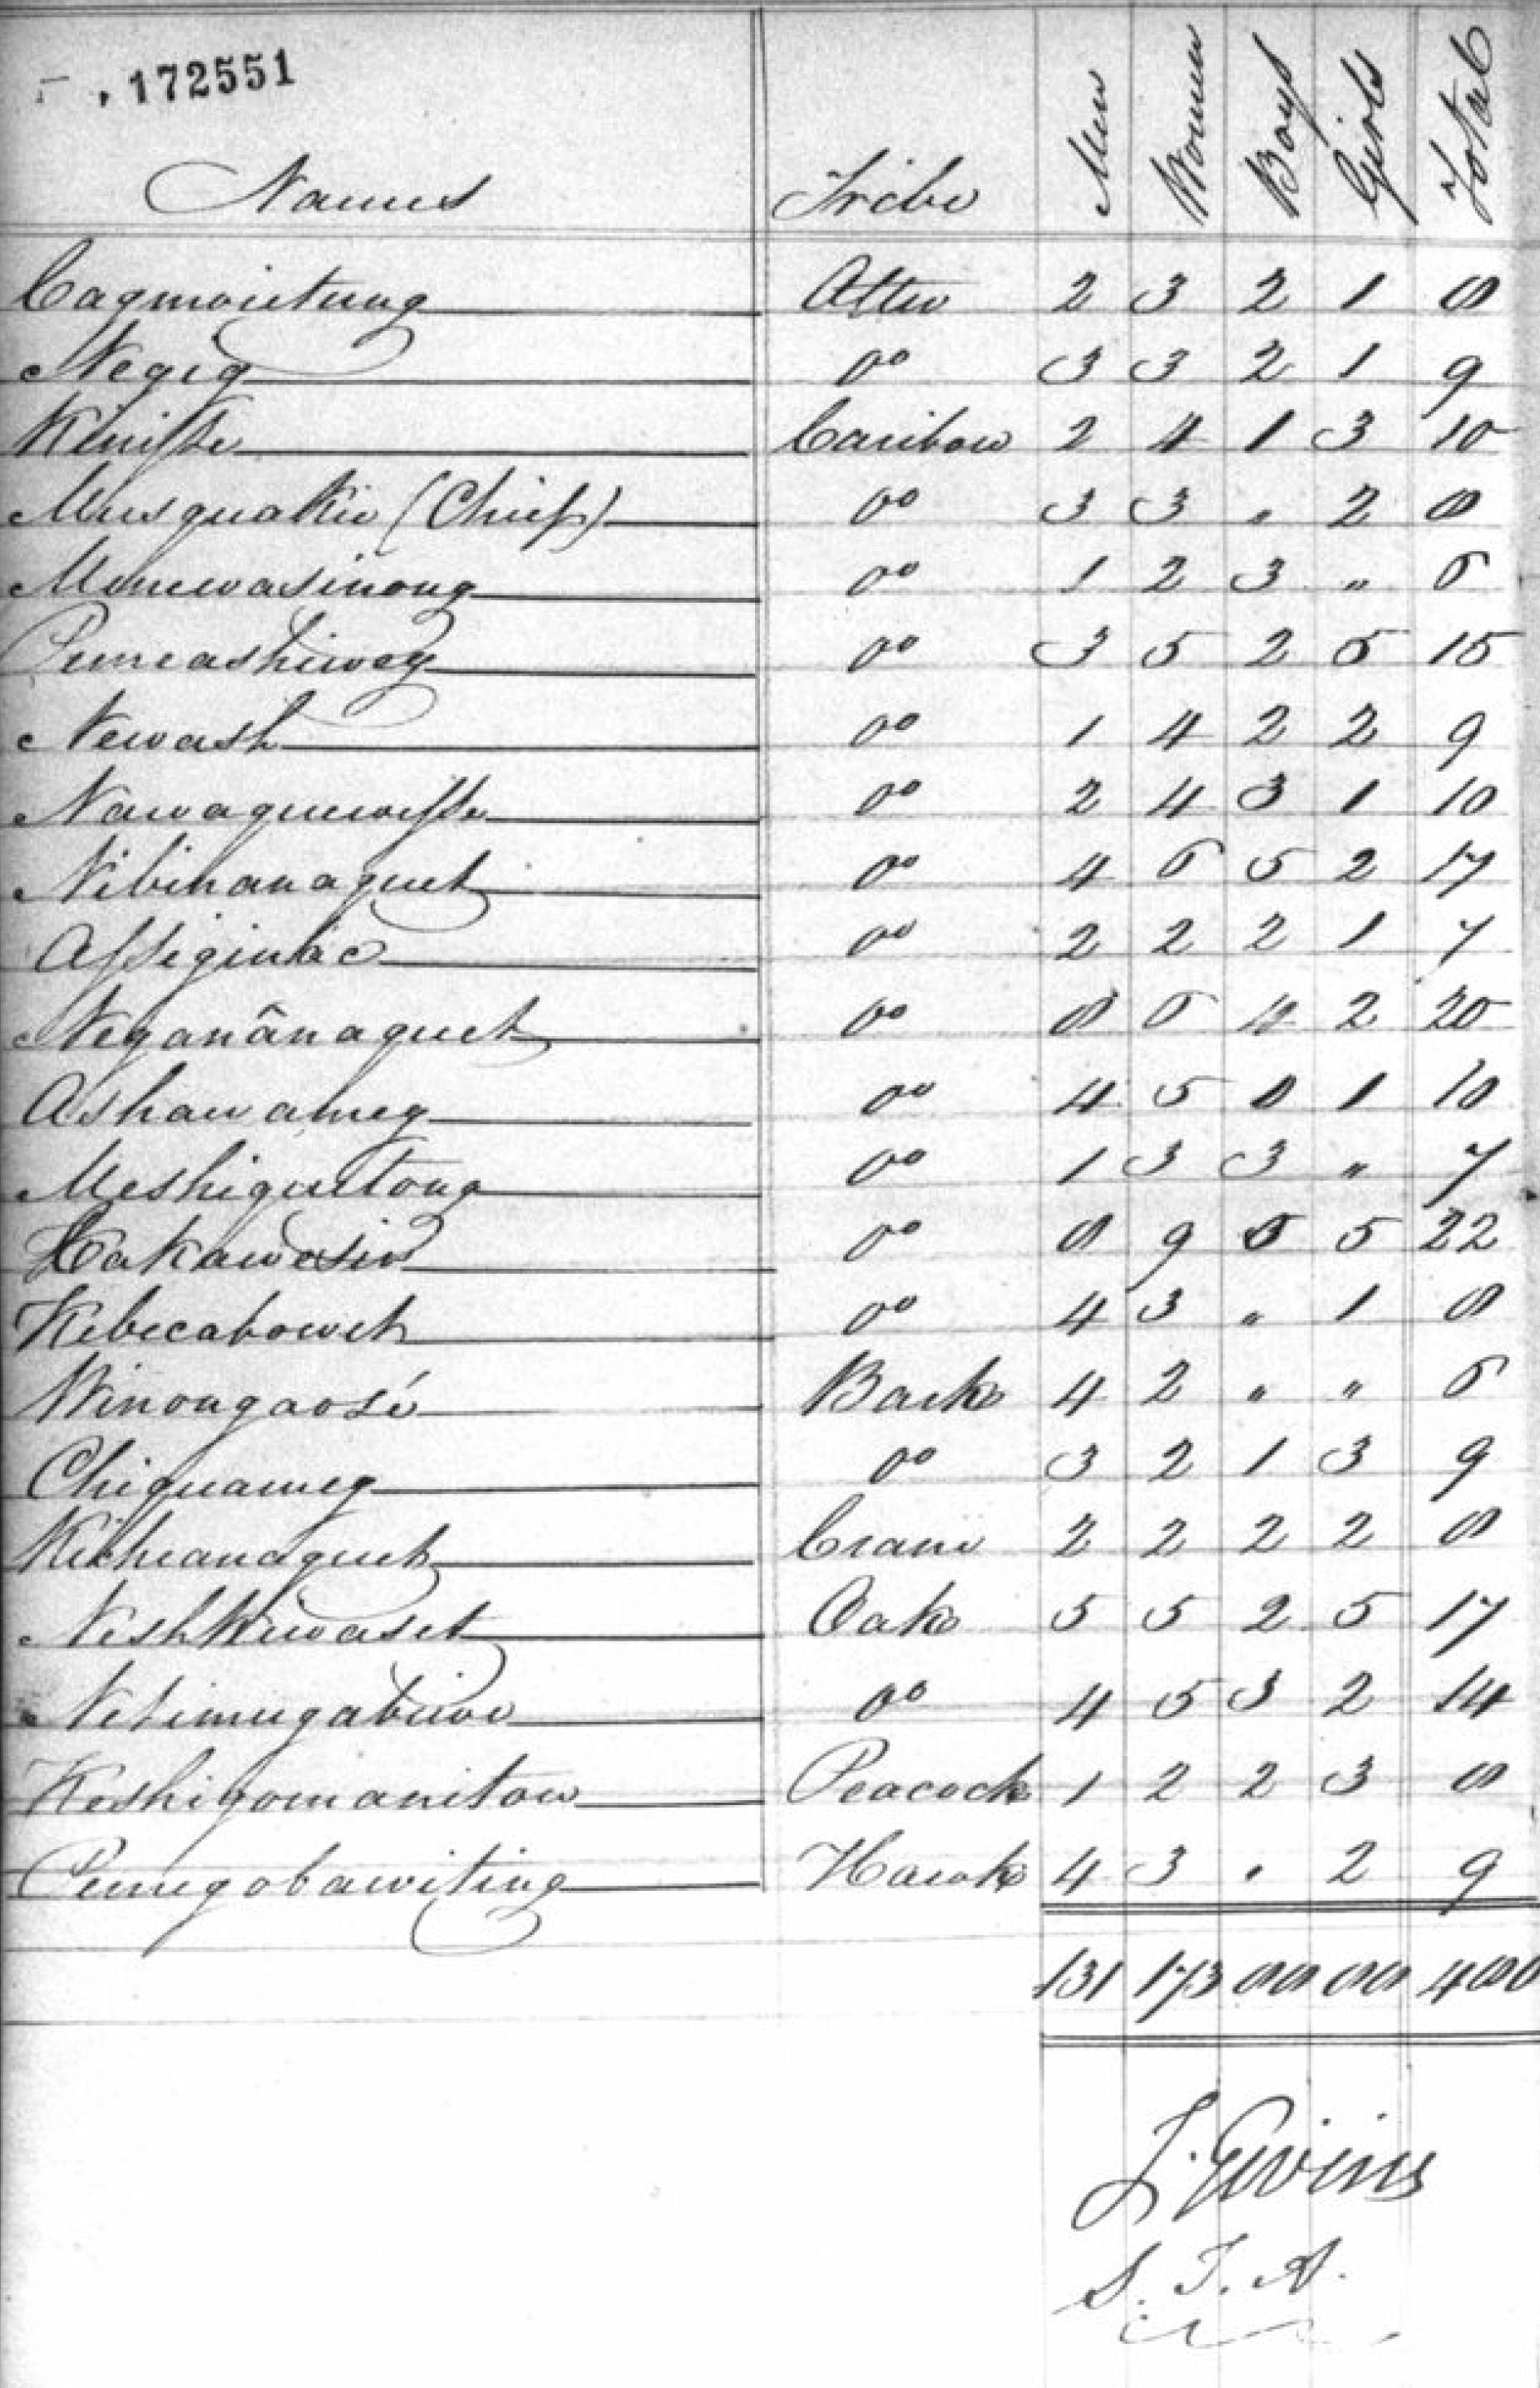 172551
Names Tribe Men Women Boys Girls Total
Cagmoietung Otter 2 3 2 1 8
Negig Do 3 3 2 1 9
Kenisse Caribou 2 4 1 3 10
Musquakie (Chief) Do 3 3 " 2 8
Monewasinong Do 1 2 3 " 6
Pemeashiweg Do 3 5 2 5 15
Newash Do 1 4 2 2 9
Nawaquewisse Do 2 4 3 1 10
Nibinanaquet Do 4 6 5 2 17
Assiginac Do 2 2 2 1 7
Neganânaquet Do 8 6 4 2 20
Ashawameg Do 4 5 0 1 10
Meshiquetong Do 1 3 3 " 7
Kakawasin Do 8 9 5 22
Kebecabowet Do 4 3 " 1 8
Winongaosé Bark 4 2 " " 6
Chiquameg Do 3 2 1 3 9
Kicheanaquet Crane 2 2 2 2 8
Neshkiwaset Oak 5 5 2 5 17
Netimugabuwe Do 4 5 3 2 14
Keshigomanitou Peacock 1 2 2 3 8
Pemegobawiting Hawk 4 3 " 2 9
131 173 88 88 480
J. Givins
S. I. A.